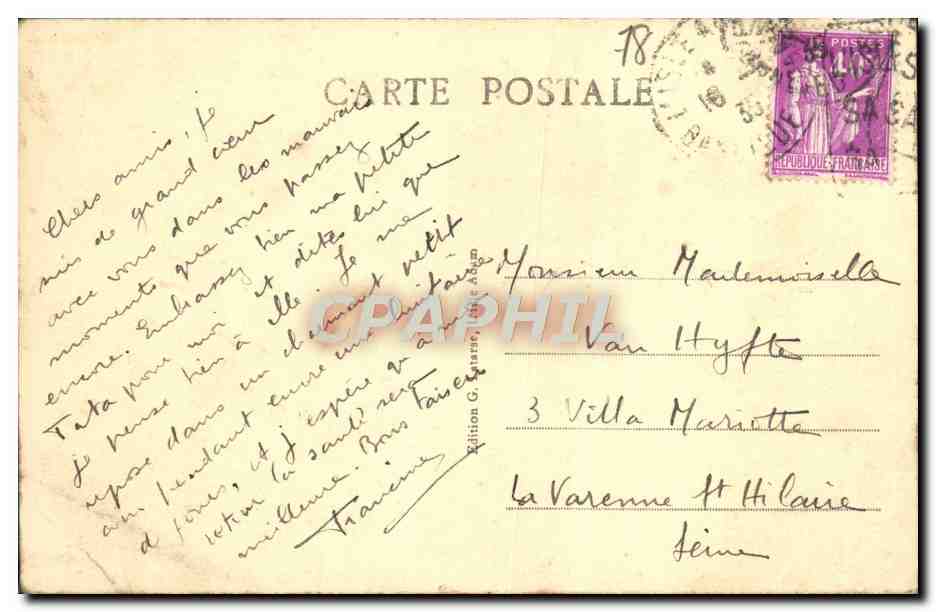 18
CARTE POSTALE
POSTES
REPUBLIQUE FRANÇAISE
Chers amis, Je
suis de grand cœur
avec vous dans les mauvais
moments que vous passez
encore. Embrassez bien ma petite
Tata pour moi et dites lui que
je pense bien à elle. Je me
repose dans un charmant petit
pendant encore une
d jours, et j'espère qu'à mon
retour la santé sera
meilleure. Bons baisers
Francine
Edition G. Adam
Monsieur Mademoiselle
Van Hyfte
3 Villa Mariotte
La Varenne St Hilaire
Seine
CPAPHIL